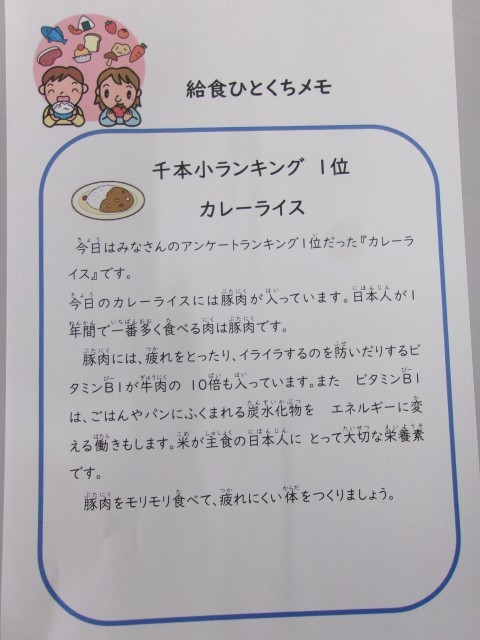 給食ひとくちメモ
千本小ランキング 1位
カレーライス
今日はみなさんのアンケートランキング1位だった『カレーラ
イス』です。
今日のカレーライスには豚肉が入っています。日本人が1
年間で一番多く食べる肉は豚肉です。
豚肉には、疲れをとったり、イライラするのを防いだりするビ
タミンB1が牛肉の 10倍も入っています。また ビタミンB1
は、ごはんやパンにふくまれる炭水化物を エネルギーに変
える働きもします。米が主食の日本人に とって大切な栄養素
です。
豚肉をモリモリ食べて、疲れにくい体をつくりましょう。